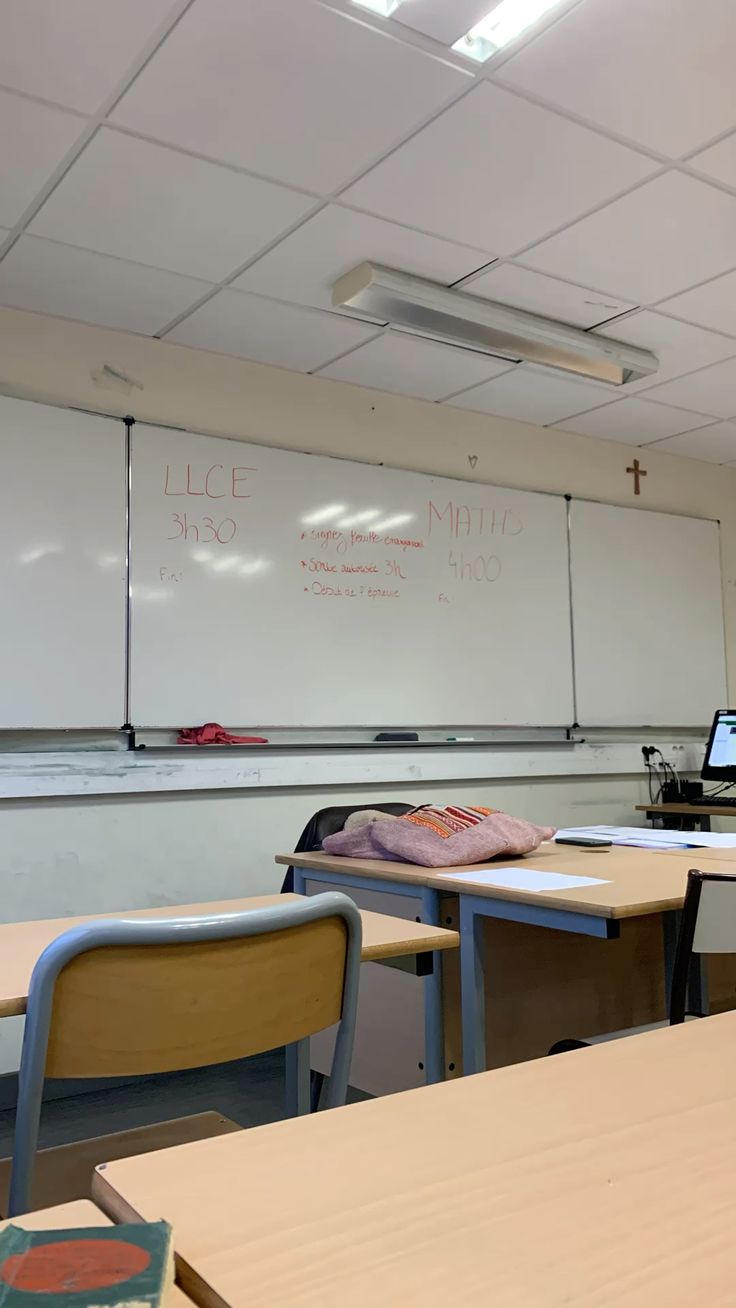 LLCE
3h30
Fin:
* signez feuille émargement
* Sortie autorisée 3h
* Début de l'épreuve
MATHS
4h00
Fin: